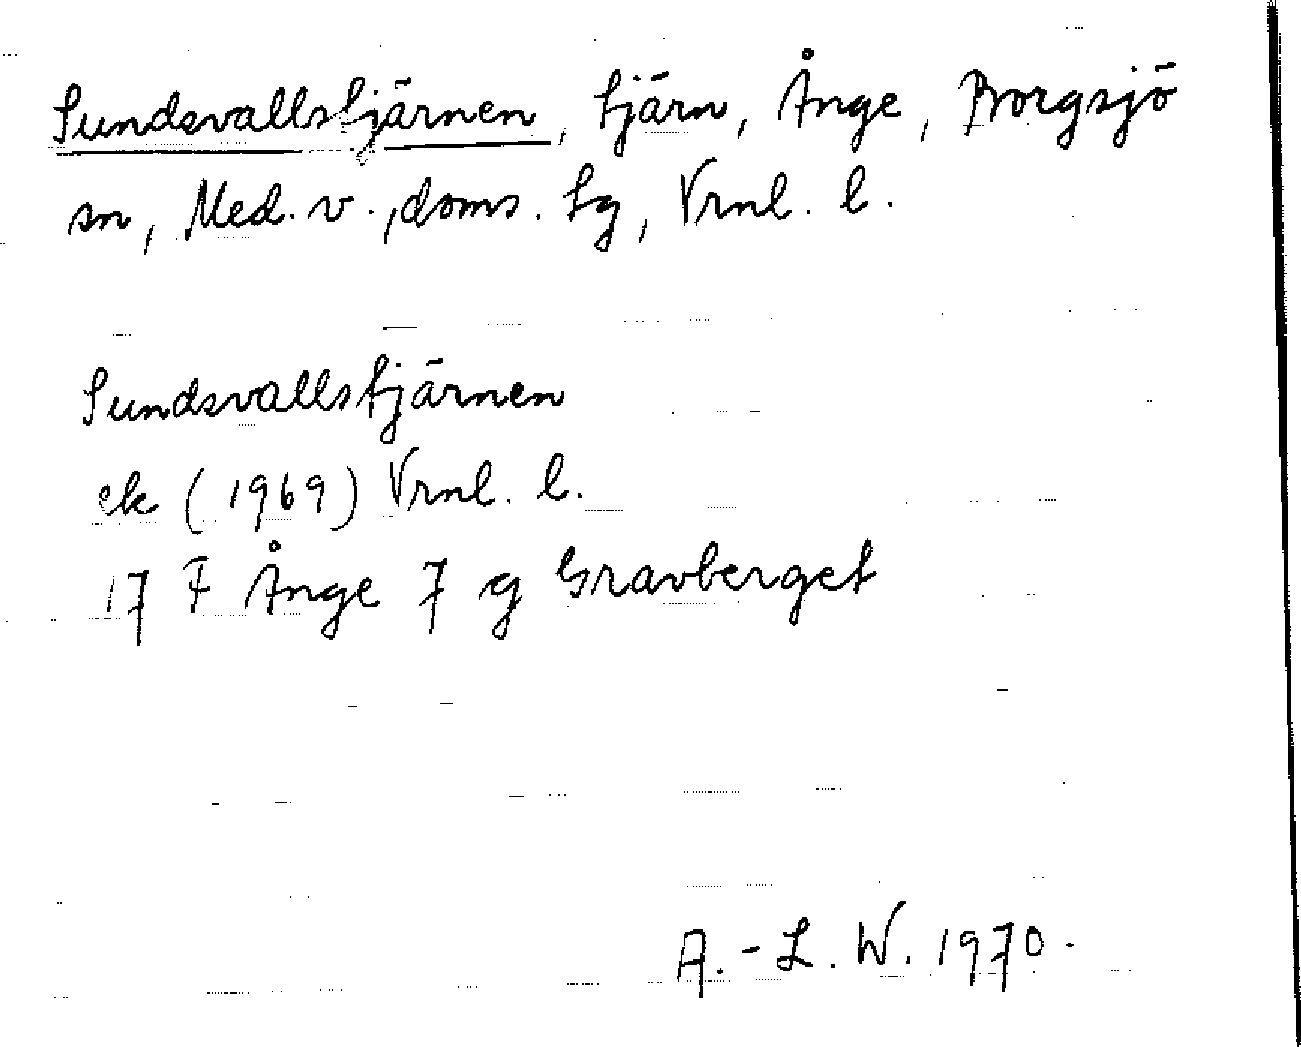 Sundsvallstjärnen, tjärn, Ånge, Borgsjö
sn, Med. v., doms. tg, Vrnl. l.
Sundsvallstjärnen
ek (1969) Vrnl. l.
17 F Ånge 7 g Gravberget
A.-L. W. 1970.